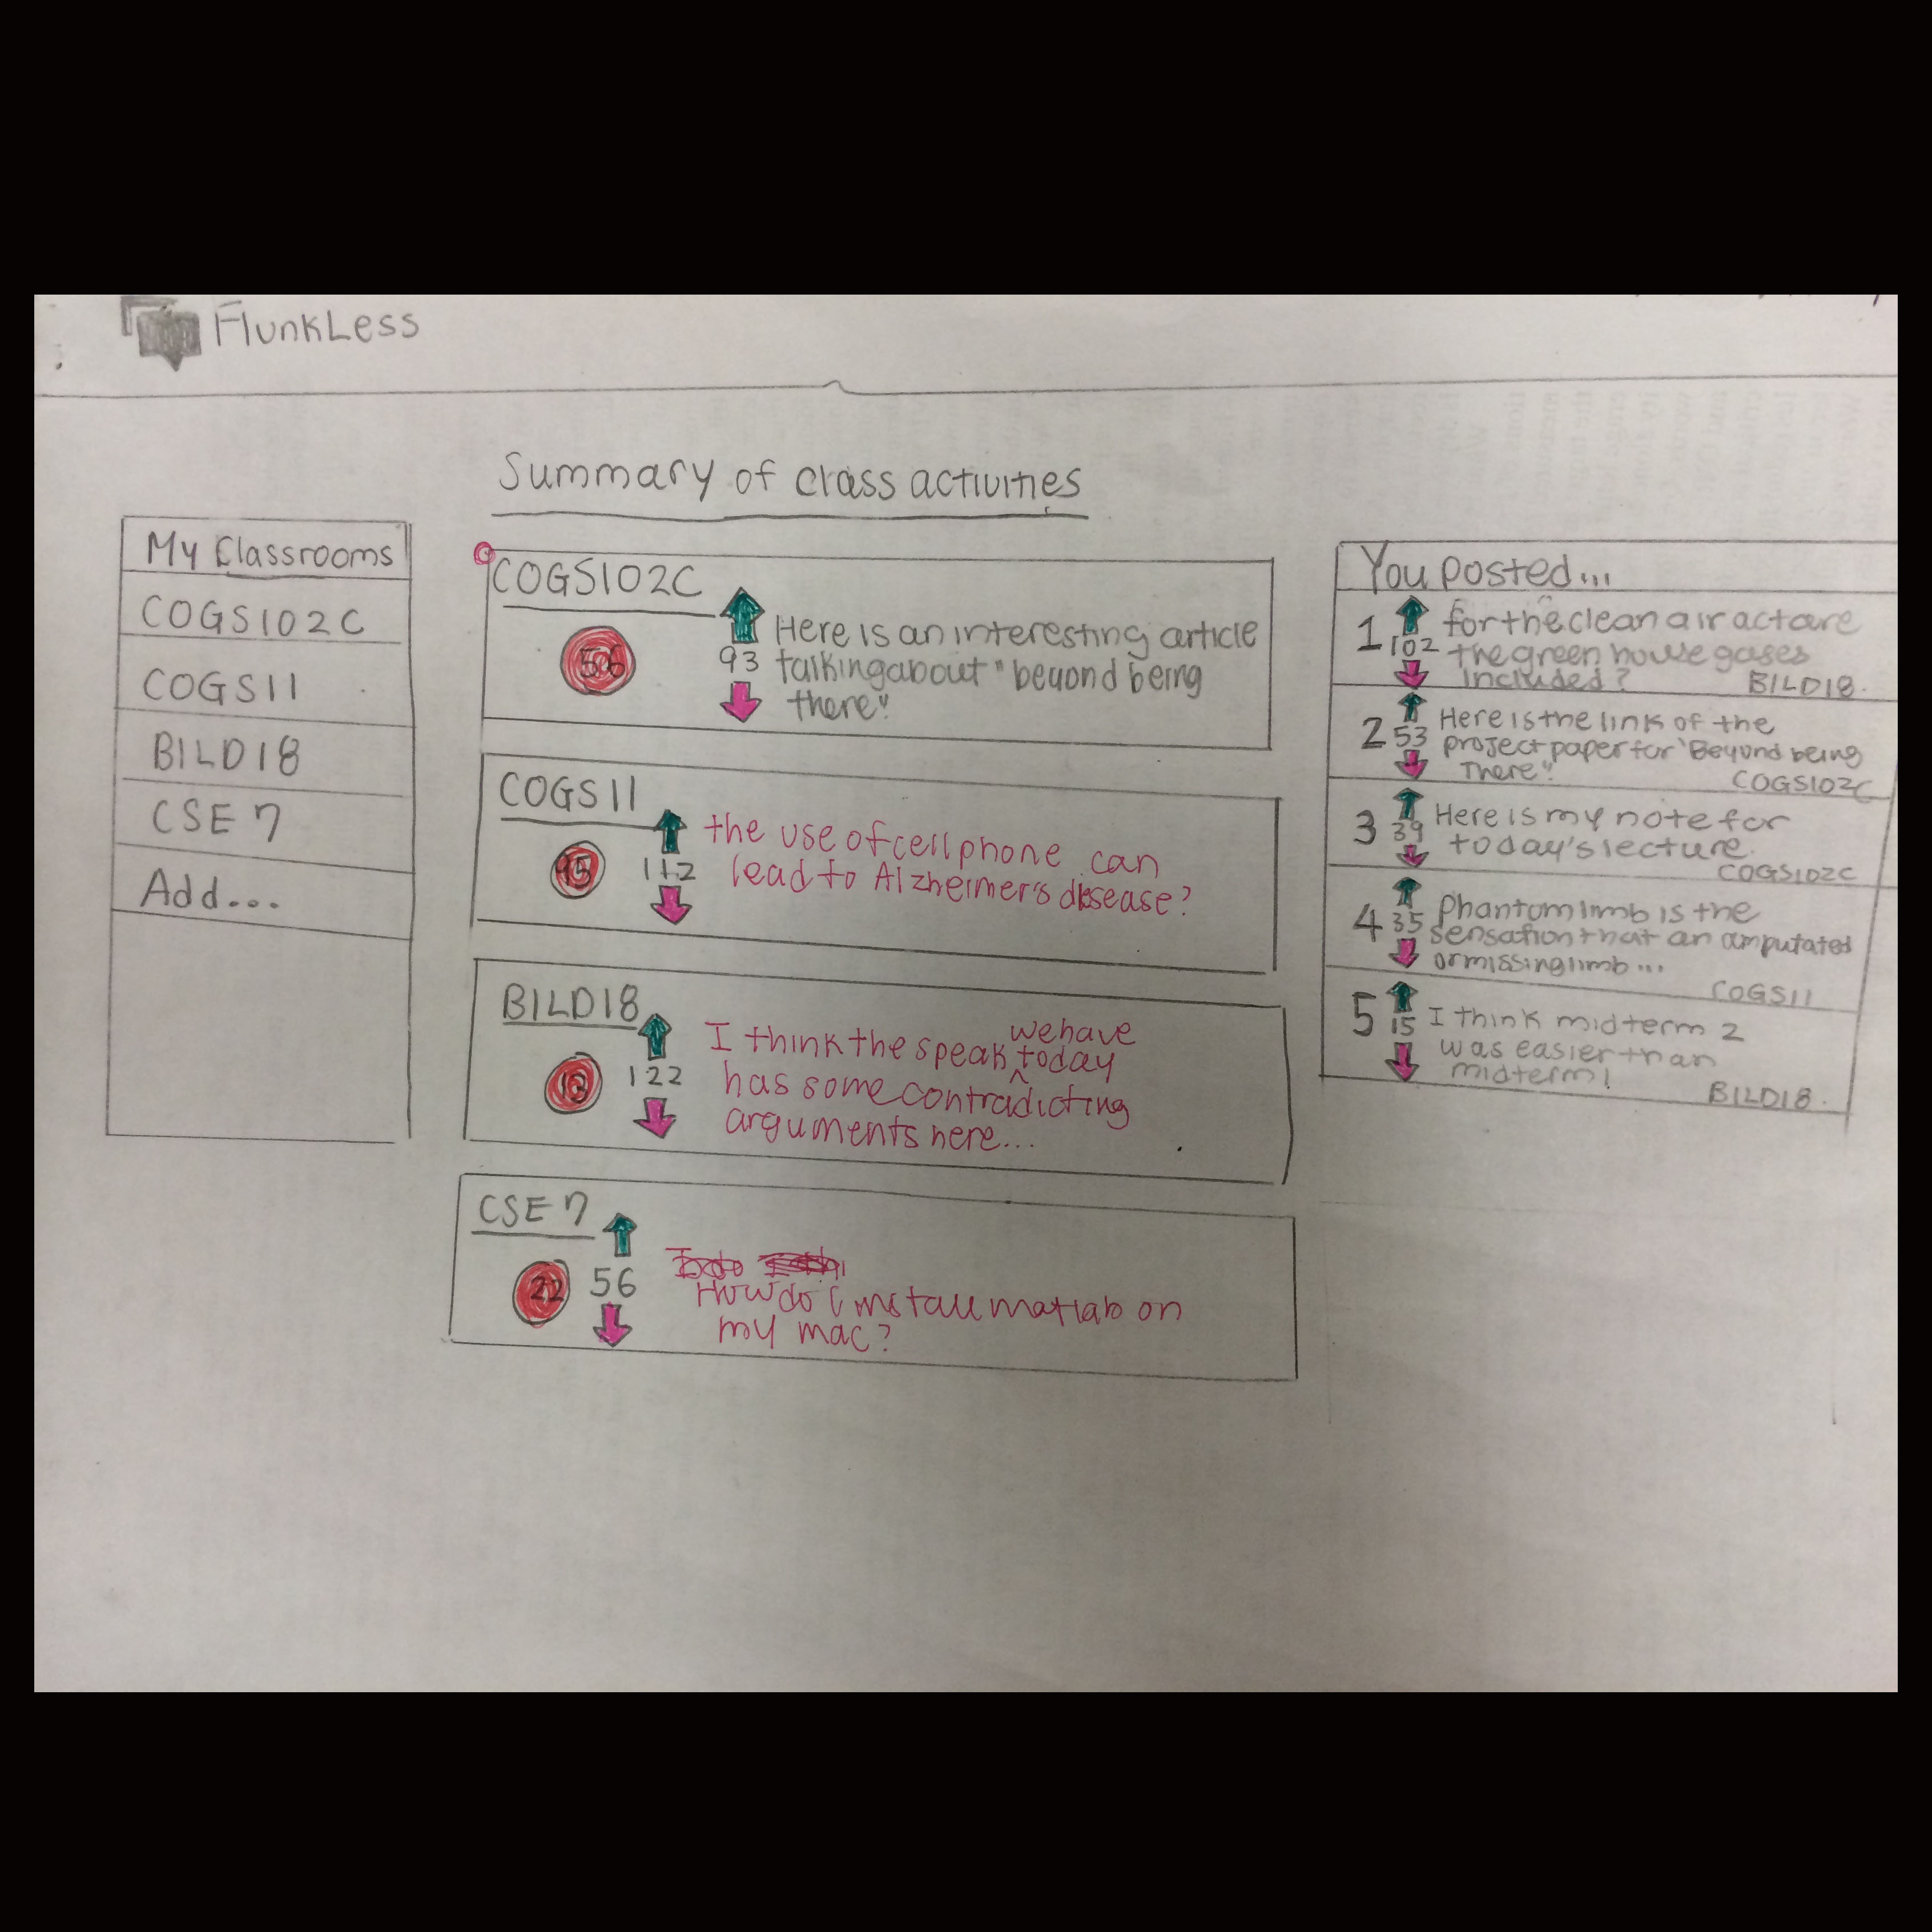 FlunkLess
Summary of class activities
My Classrooms
COGS102C
COGS11
BILD18
CSE 7
Add...
COGS102C
56
93
Here is an interesting article
talking about "beyond being
there"
COGS11
45
112
the use of cell phone can
lead to Alzheimer's disease?
BILD18
13
122
we have
I think the speak today
has some contradicting
arguments here...
CSE 7
22
56
How do I install matlab on
my mac?
You posted...
1
102
for the clean air act are
the green house gases
included?
BILD18.
2
53
Here is the link of the
project paper for "Beyond being
There".
COGS102C
3
39
Here is my note for
today's lecture.
COGS102C
4
35
Phantom limb is the
sensation that an amputated
or missing limb...
COGS11
5
15
I think midterm 2
was easier than
midterm 1
BILD18.